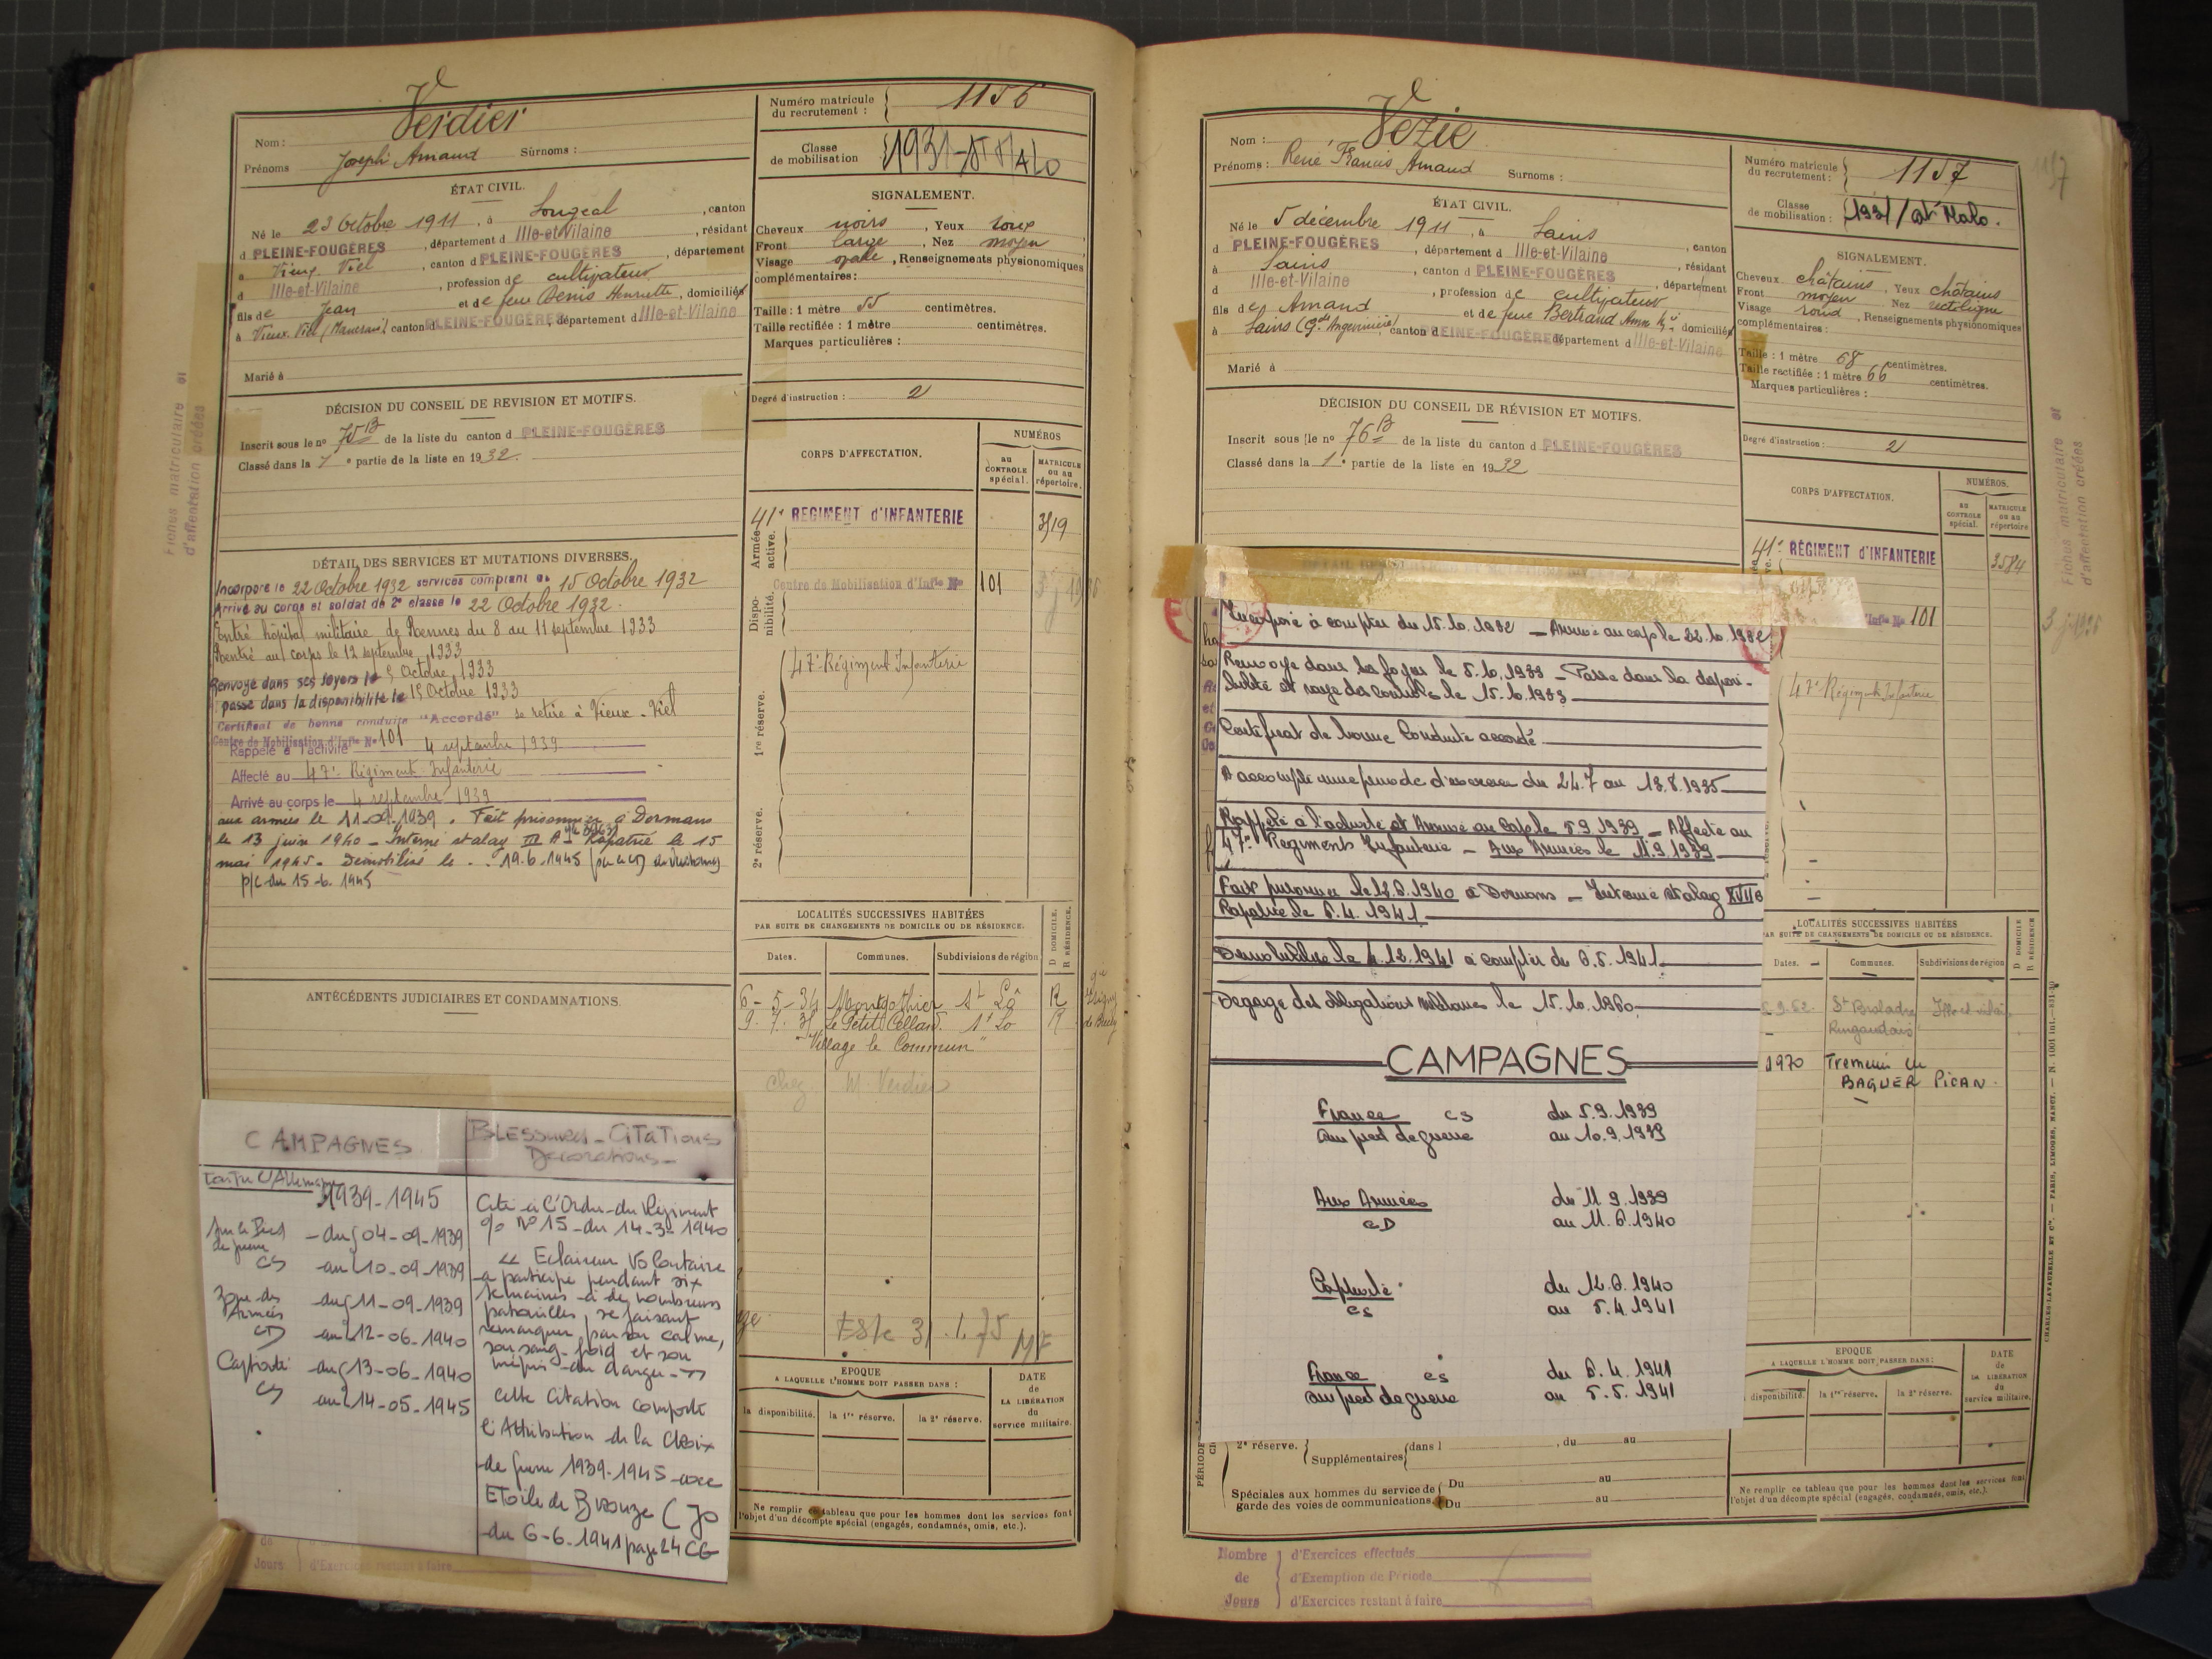 Verdier
Nom :
Prénoms Joseph Amand Surnoms :
ÉTAT CIVIL.
Né le 23 Octobre 1911, à Sougeal, canton
d PLEINE-FOUGÈRES, département d Ille-et-Vilaine, résidant
à Vieux Viel, canton d PLEINE-FOUGÈRES, département
d Ille-et-Vilaine, profession de cultivateur
fils de Jean et de feue Denis Henriette, domiciliés
à Vieux-Viel canton d PLEINE-FOUGÈRES département d Ille-et-Vilaine
Marié à
DÉCISION DU CONSEIL DE REVISION ET MOTIFS.
Inscrit sous le no 75 B de la liste du canton d PLEINE-FOUGÈRES
Classé dans la 1e partie de la liste en 1932.
DÉTAIL DES SERVICES ET MUTATIONS DIVERSES.
Incorporé le 22 Octobre 1932 services comptant du 15 Octobre 1932
Arrivé au corps et soldat de 2e classe le 22 Octobre 1932.
Entré hôpital militaire de Rennes du 8 au 11 septembre 1933
Rentré au corps le 12 septembre 1933
Renvoyé dans ses foyers le 5 Octobre 1933
passé dans la disponibilité le 15 Octobre 1933
Certificat de bonne conduite "Accordé" se retire à Vieux-Viel
Centre de Mobilisation d'Infie No 101
Rappelé à l'activité 4 septembre 1939
Affecté au 47e Régiment Infanterie
Arrivé au corps le 4 septembre 1939
aux armées le 11-09-1939. Fait prisonnier à Dormans
le 13 juin 1940 - Interné stalag III A - Rapatrié le 15
mai 1945. Démobilisé le 19.6.1945
p/c du 15-6.1945
ANTÉCÉDENTS JUDICIAIRES ET CONDAMNATIONS.
CAMPAGNES
Contre l'Allemagne 1939-1945
Sur le Pied de guerre
CS
du 04-09-1939
au 10-09-1939
Zone des Armées
CD
du 11-09-1939
au 12-06-1940
Captivité
CS
du 13-06-1940
au 14-05-1945
BLESSURES - CITATIONS
Décorations -
Cité à l'Ordre du Régiment
No 15 - du 14-3-1940
" Eclaireur Volontaire
a participé pendant six
semaines à de nombreuses
patrouilles, se faisant
remarquer par son calme,
son sang-froid et son
mépris du danger "
Cette Citation comporte
l'Attribution de la Croix
de guerre 1939-1945 avec
Etoile de Bronze (JO
du 6-6-1941 page 24 CG
de
Jours d'Exercices restant à faire
Numéro matricule du recrutement : 1156
Classe de mobilisation 1931 - St MALO
SIGNALEMENT.
Cheveux noirs, Yeux roux
Front large, Nez moyen
Visage ovale, Renseignements physionomiques
complémentaires:
Taille : 1 mètre 55 centimètres.
Taille rectifiée : 1 mètre centimètres.
Marques particulières :
Degré d'instruction : 2
CORPS D'AFFECTATION.
NUMÉROS
au CONTROLE spécial.
MATRICULE ou au répertoire.
Armée active.
41e REGIMENT d'INFANTERIE 3519
Disponibilité.
Centre de Mobilisation d'Infie No 101
1re réserve.
47e Régiment Infanterie
2e réserve.
LOCALITÉS SUCCESSIVES HABITÉES
PAR SUITE DE CHANGEMENTS DE DOMICILE OU DE RÉSIDENCE.
D DOMICILE.
R RÉSIDENCE.
Dates. Communes. Subdivisions de région
6-5-34 Montgothier St Lô R
9.7.35 Le Petit Celland. St Lo R
"Village le Commun"
chez M. Verdier
EPOQUE
A LAQUELLE L'HOMME DOIT PASSER DANS :
la disponibilité. la 1re réserve. la 2e réserve.
DATE de LA LIBÉRATION du service militaire.
Ne remplir ce tableau que pour les hommes dont les services font
l'objet d'un décompte spécial (engagés, condamnés, omis, etc.).
Fiches matriculaire et
d'affectation créées
Vezie
Nom :
Prénoms : René Francis Amand Surnoms :
ÉTAT CIVIL.
Né le 5 décembre 1911, à Sains, canton
d PLEINE-FOUGÈRES, département d Ille-et-Vilaine, résidant
à Sains, canton d PLEINE-FOUGÈRES, département
d Ille-et-Vilaine, profession de cultivateur
fils de Amand et de feue Bertrand Anne, domiciliés
à Sains canton d PLEINE-FOUGÈRES département d Ille-et-Vilaine
Marié à
DÉCISION DU CONSEIL DE RÉVISION ET MOTIFS.
Inscrit sous le no 76 B de la liste du canton d PLEINE-FOUGÈRES
Classé dans la 1e partie de la liste en 1932
Incorporé à compter du 15.10.1932 - Arrivé au corps le 22.10.1932
Renvoyé dans ses foyers le 5.10.1933 - Passé dans la disponi-
bilité et rayé des contrôles le 15.10.1933
Certificat de bonne Conduite accordé
A accompli une période d'exercices du 24.7 au 13.8.1935
Rappelé à l'activité et Arrivé au Corps le 5.9.1939 - Affecté au
47e Régiment Infanterie - Aux Armées le 11.9.1939
Fait prisonnier le 12.6.1940 à Dormans - Interné stalag XVII B
Rapatrié le 5.4.1941
Démobilisé le 4.12.1941 à compter du 6.5.1941
Dégagé des obligations militaires le 15.10.1960
CAMPAGNES
France CS du 5.9.1939
au pied de guerre au 10.9.1939
Aux Armées du 11.9.1939
CD au 11.6.1940
Captivité du 12.6.1940
CS au 5.4.1941
France CS du 6.4.1941
au pied de guerre au 5.5.1941
2e réserve. Supplémentaires (dans l , du au
Spéciales aux hommes du service de garde des voies de communications. Du au
Du au
Nombre de Jours
d'Exercices effectués
d'Exemption de Période
d'Exercices restant à faire
Numéro matricule du recrutement : 1157
Classe de mobilisation : 1931 / St Malo.
SIGNALEMENT.
Cheveux châtains, Yeux châtains
Front moyen, Nez rectiligne
Visage rond, Renseignements physionomiques
complémentaires :
Taille : 1 mètre 68 centimètres.
Taille rectifiée : 1 mètre 66 centimètres.
Marques particulières :
Degré d'instruction : 2
CORPS D'AFFECTATION.
NUMÉROS.
au CONTROLE spécial.
MATRICULE ou au répertoire
41e RÉGIMENT d'INFANTERIE 3584
Infie No 101
47e Régiment Infanterie
LOCALITÉS SUCCESSIVES HABITÉES
PAR SUITE DE CHANGEMENTS DE DOMICILE OU DE RÉSIDENCE.
D DOMICILE
R RÉSIDENCE.
Dates. Communes. Subdivisions de région
St Broladre Ille et Vilaine
1970 BAGUER PICAN
EPOQUE
A LAQUELLE L'HOMME DOIT PASSER DANS :
disponibilité. la 1re réserve. la 2e réserve.
DATE de LA LIBÉRATION du service militaire.
Ne remplir ce tableau que pour les hommes dont les services font
l'objet d'un décompte spécial (engagés, condamnés, omis, etc.).
Fiches matriculaire et
d'affectation créées
CHARLES-LAVAUZELLE ET Cie. — PARIS, LIMOGES, NANCY.